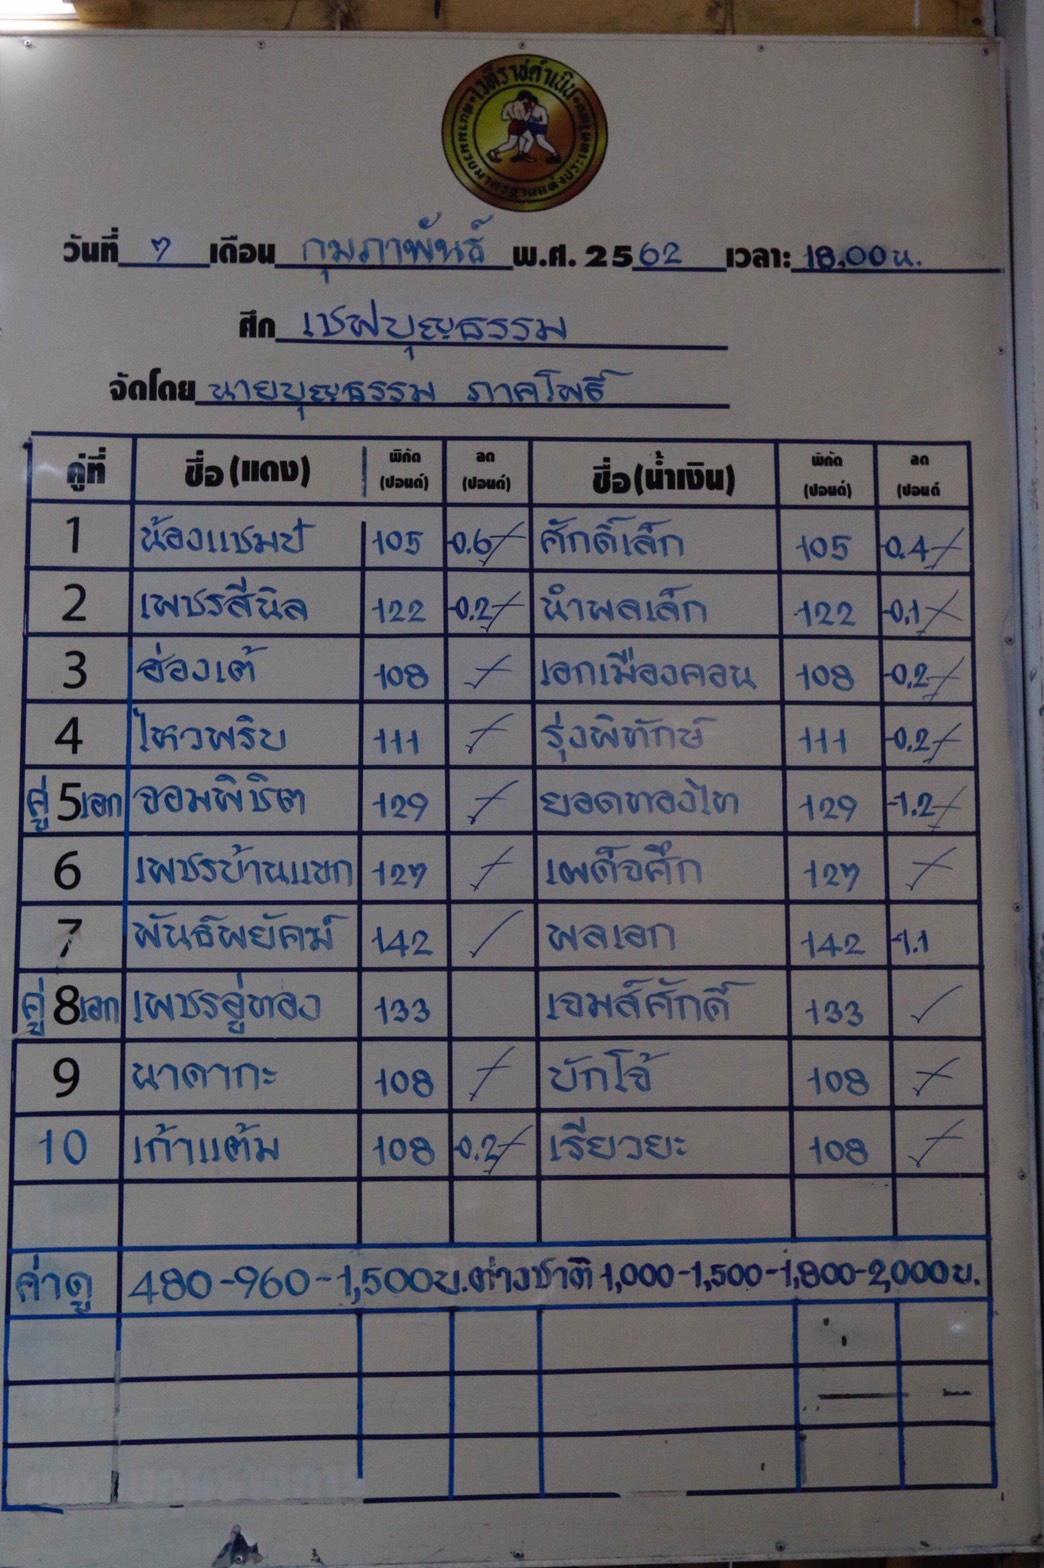 เวทีราชดำเนิน
วันที่ 7 เดือน กุมภาพันธ์ พ.ศ. 2562 เวลา: 18.00 น.
ศึก เชฟบุญธรรม
จัดโดย นายบุญธรรม ภาคโพธิ์
คู่ที่ ชื่อ (แดง) พิกัด (ปอนด์) ลด (ปอนด์) ชื่อ (น้ำเงิน) พิกัด (ปอนด์) ลด (ปอนด์)
1 น้องแชมป์ 105 -0.6 ศักดิ์เล็ก 105 -0.4
2 เพชรสีนิล 122 -0.2 นำพลเล็ก 122 -0.1
3 ฮ่องเต้ 108 เอกเมืองคอน 108 -0.2
4 ไหวพริบ 111 รุ่งพิทักษ์ 111 -0.2
คู่ 5 เอก จอมพิชิต 129 ยอดทองไท 129 -1.2
6 เพชรบ้านแขก 127 เผด็จศึก 127
7 พันธ์พยัคฆ์ 142 พลเอก 142 -1.1
คู่ 8 เอก เพชรอู่ทอง 133 เจมส์ศักดิ์ 133
9 นาดากะ 108 บักโจ้ 108
10 เก้าแต้ม 108 -0.2 เรียวยะ 108
ค่าดู 480-960-1,500บ. ต่างชาติ 1,000-1,500-1,800-2,000บ.